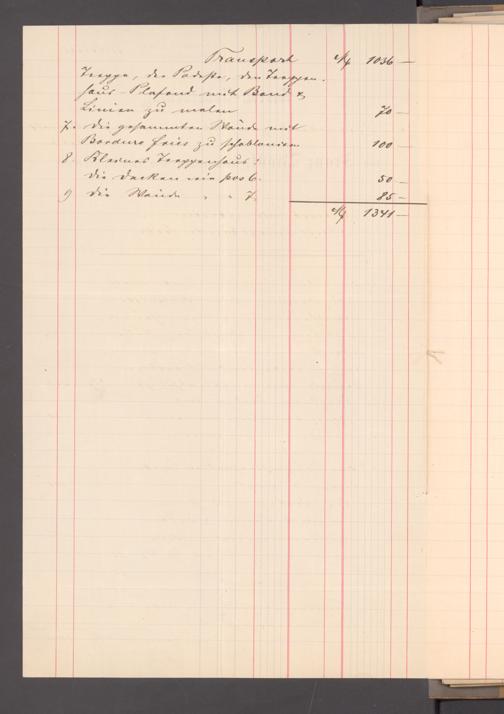 Transport ℳ 1036 —
Treppe, die Podeste, den Treppen-
haus-Plafond mit Band &
Linien zu malen 70 —
7. Die gesammten Wände mit
Bordure fries zu schablonieren 100 —
8 Kleines Treppenhaus:
die Decken wie pos 6. 50 —
9 die Wände " " 7. 85 —
ℳ 1341 —